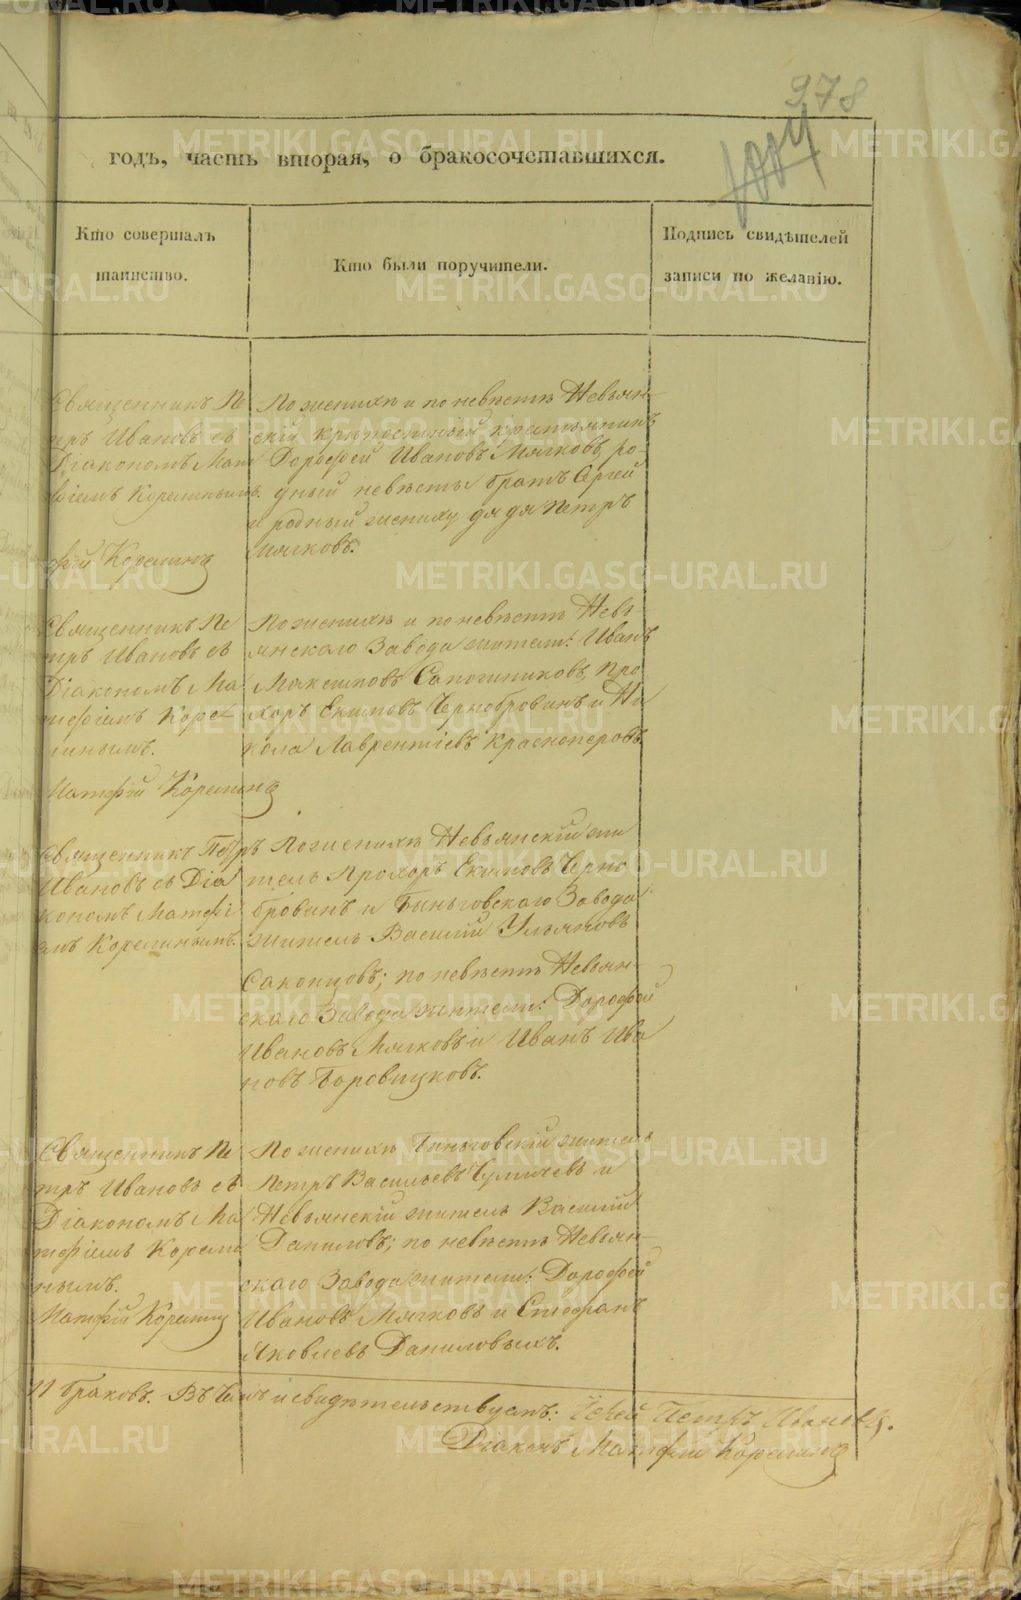 978
1004
годъ, часть вторая, о бракосочетавшихся.
Кто совершалъ
таинство.
Кто были поручители.
Подпись свидѣтелей
записи по желанію.
Священникъ Пе
тръ Ивановъ съ
Діакономъ Мат
фіемъ Корелинымъ.
фій Корелинъ
По женихѣ и по невѣстѣ Невьян-
скій крѣпостный крестьянинъ
Дорофей Ивановъ Мягковъ, ро-
дный невѣсты братъ Сергей
и родный жениху дядя Петръ
Мягковъ.
Священникъ Пе
тръ Ивановъ съ
Діакономъ Ма
тфіемъ Коре
линымъ.
Матфій Корелинъ
По женихѣ и по невѣстѣ Невь-
янскаго Завода жители: Иванъ
Максимовъ Сапожниковъ, Про
хоръ Екимовъ Чернобровинъ и Ни
кола Лаврентіевъ Красноперовъ.
Священникъ Петръ
Ивановъ съ Діа
кономъ Матфі
емъ Корелинымъ.
По женихѣ Невьянскій жи
тель Прохоръ Екимовъ Черно
бровинъ и Быньговскаго Завода
житель Василій Ульяновъ
Саконцовъ; по невѣстѣ Невьян-
скаго Завода жители: Дорофей
Ивановъ Мягковъ и Иванъ Ива
новъ Боровицковъ.
Священникъ Пе
тръ Ивановъ съ
Діакономъ Ма
тфіемъ Корели
нымъ.
Матфій Корелинъ
По женихѣ Быньговскій житель
Петръ Васильевъ и
Невьянскій житель Василій
Даниловъ; по невѣстѣ Невьян-
скаго Завода жители: Дорофей
Ивановъ Мягковъ и Стефанъ
Яковлевъ Даниловыхъ.
11 браковъ. Въ чемъ и свидѣтельствуемъ: Іерей Петръ Ивановъ.
Діаконъ Матфій Корелинъ